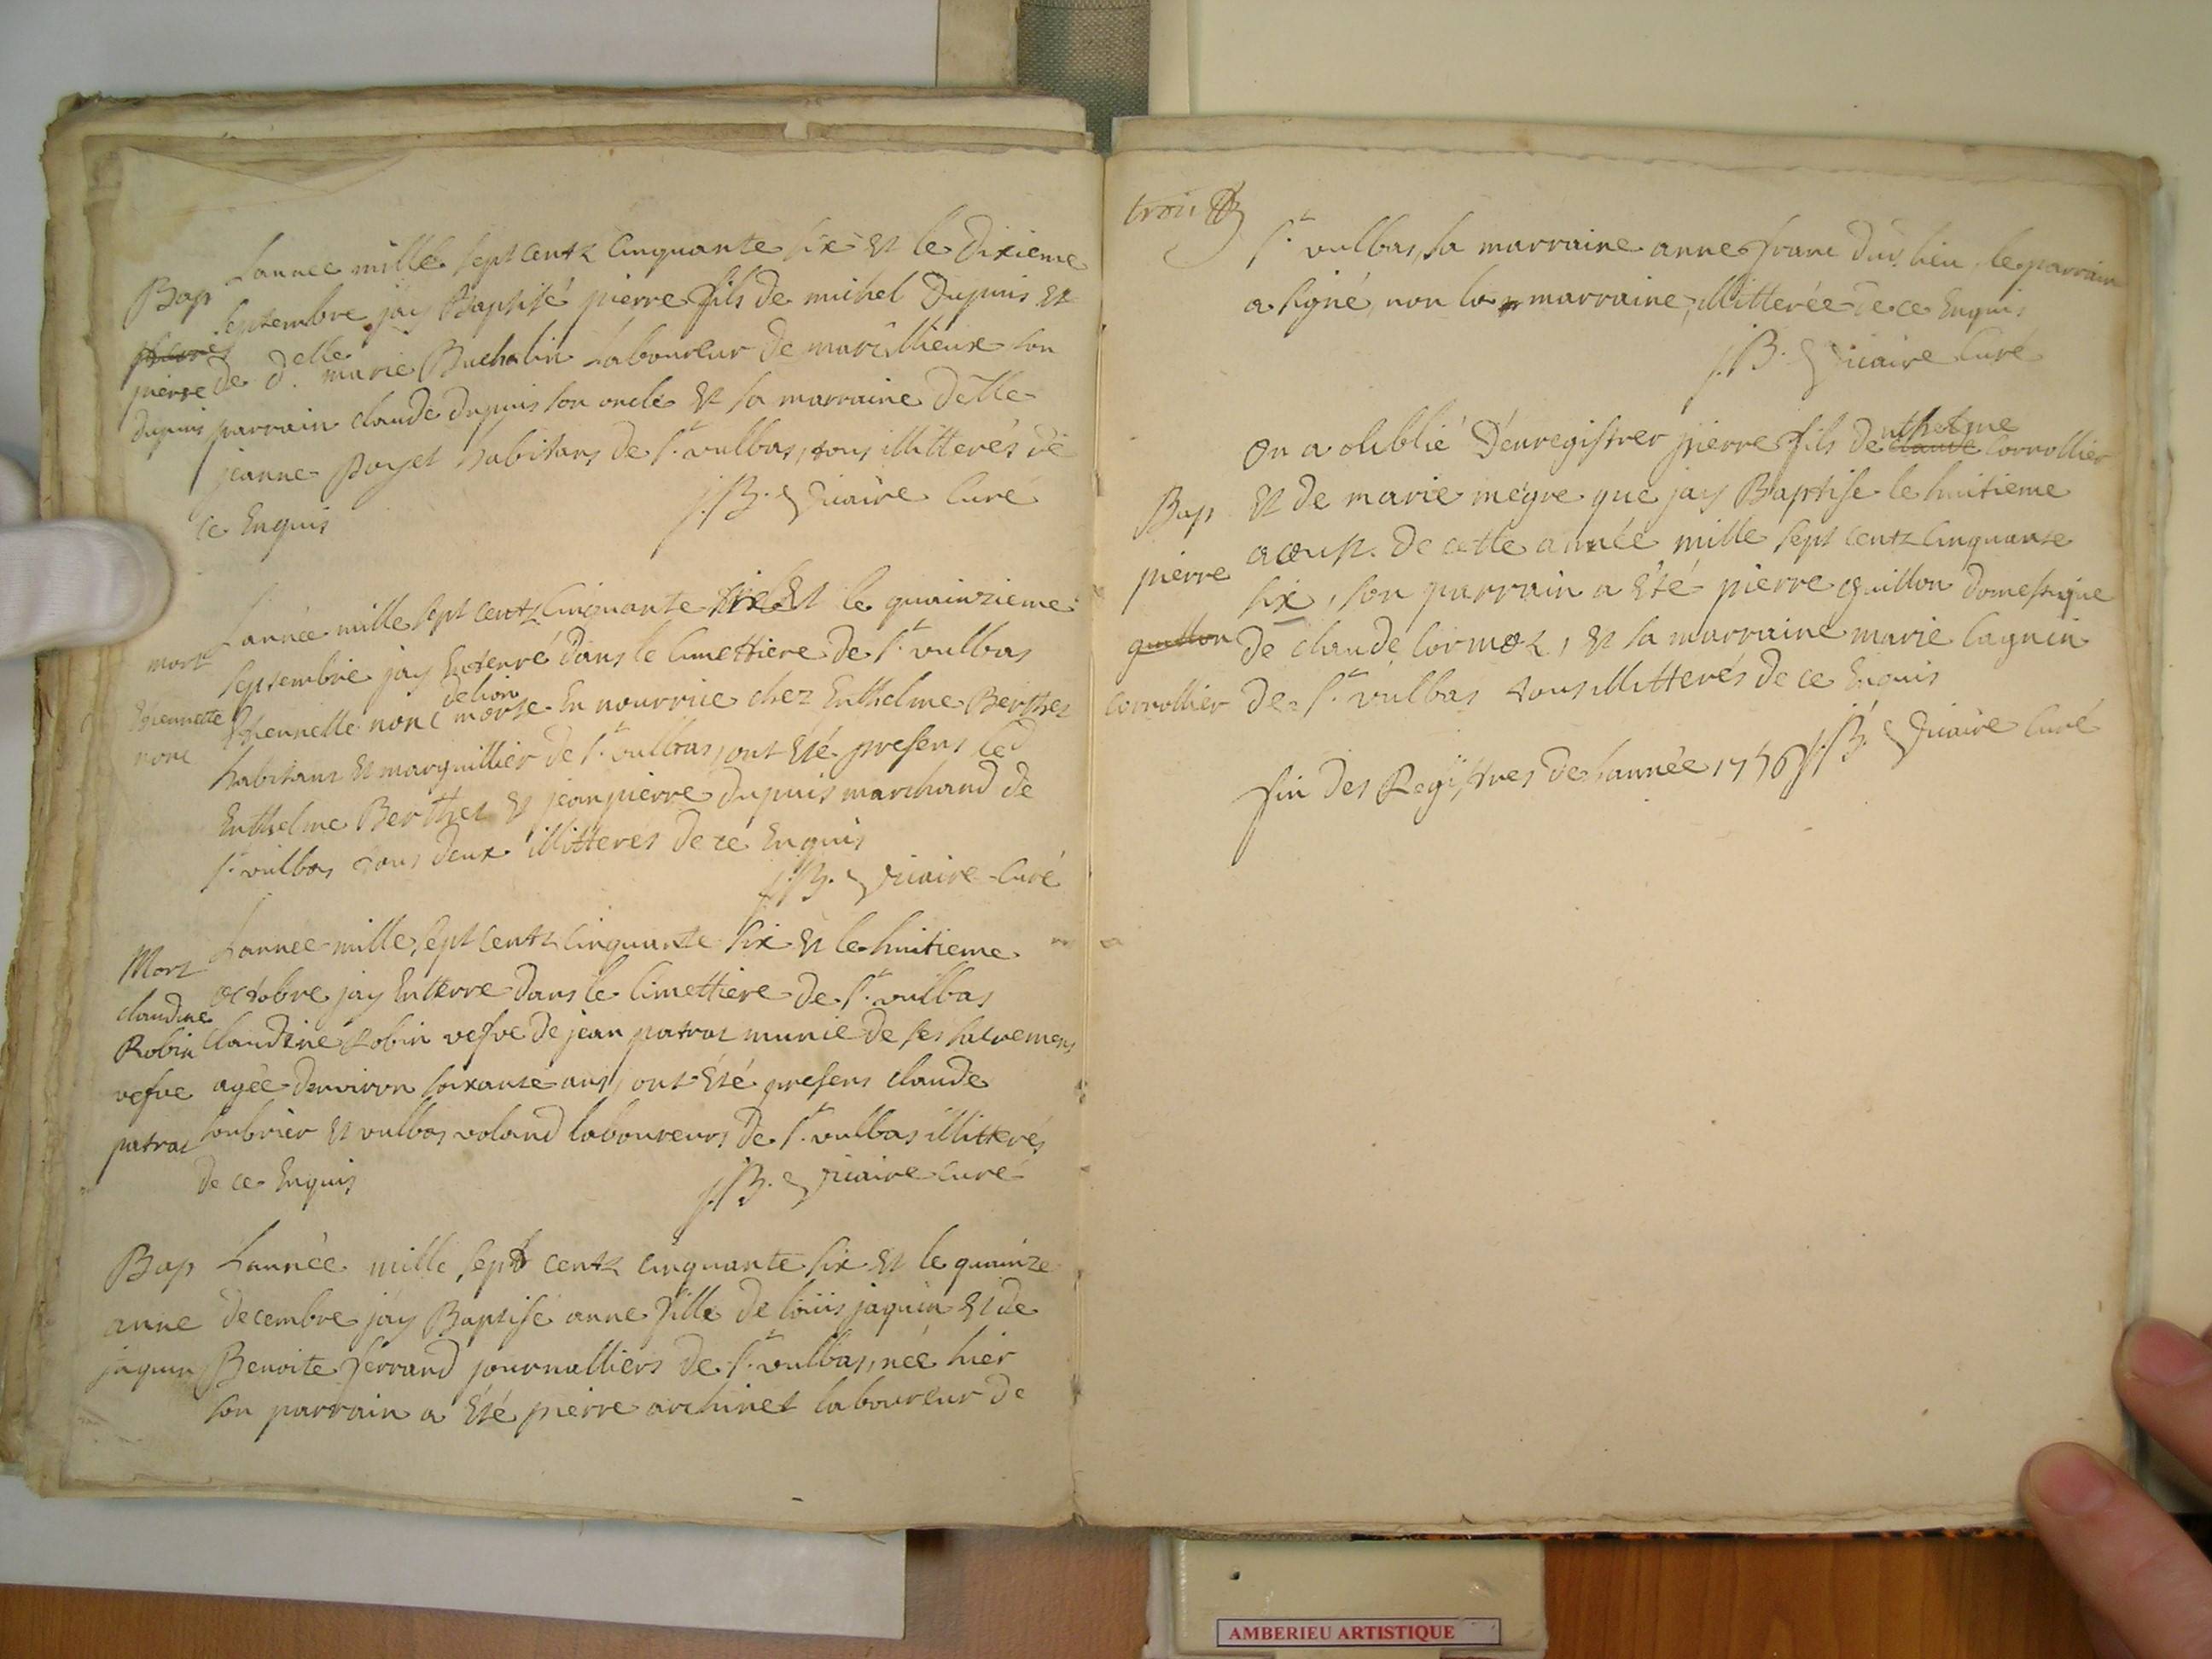 Bap
pierre
dupuis
Lannee mille sept centz cinquante six et le dixieme
septembre jay Baptisé pierre fils de michel Dupuis et
de d.elle marie Buchalin Laboureur de marcillieux son
parrain claude dupuis son oncle et sa marraine delle
jeanne Poyet habitans de st. vulbas, tous illitterés de
ce Enquis
j. B. Vicaire Curé
mort
Ethiennette
nore
Lannée mille sept centz Cinquante six et le quainzieme
septembre jay Enterré dans le Cimettiere de st. vulbas
delion
Ethiennette morte En nourrice chez Enthelme Berthet
habitant et marguillier de st. vulbas, ont été presens led
Enthelme Berthet et jeanpierre dupuis marchand de
st. vulbas tous deux illitterés de ce Enquis
j. B. Vicaire Curé
Mort
claudine
Robin
vefve
patrat
Lannee mille sept centz cinquante six et le huitieme
octobre jay Entterre dans le Cimettiere de st. vulbas
Claudine Robin vefve de jean patrat munie de ses sacremens
agée denviron soixante ans, ont été presens claude
et vulbas voland laboureurs de st. vulbas illitterés
de ce Enquis
j. B. Vicaire Curé
Bap
anne
jaquin
Lannée mille sept centz cinquante six et le quainze
decembre jay Baptisé anne fille de loüis jaquin et de
Benoite ferrand journalliers de st. vulbas, née hier
son parrain a été pierre archinet laboureur de
trois
st. vulbas, sa marraine anne franc dud. lieu, le parrain
a signé, non la marraine, illitterée de ce Enquis
j. B. Vicaire Curé
Bap
pierre
guillon
Corrollier
On a oublié D'enregistrer pierre fils de claude nthelme Corrollier
et de marie mégre que jay Baptise le huitieme
aoust. De cette année mille sept centz Cinquante
six, son parrain a été pierre guillon domestique
de claude Cormoz, et sa marraine marie Cagnin
de st. vulbas tous illitterés de ce Enquis
j. B. Vicaire Curé
fin des Registres de lannée 1756
AMBERIEU ARTISTIQUE